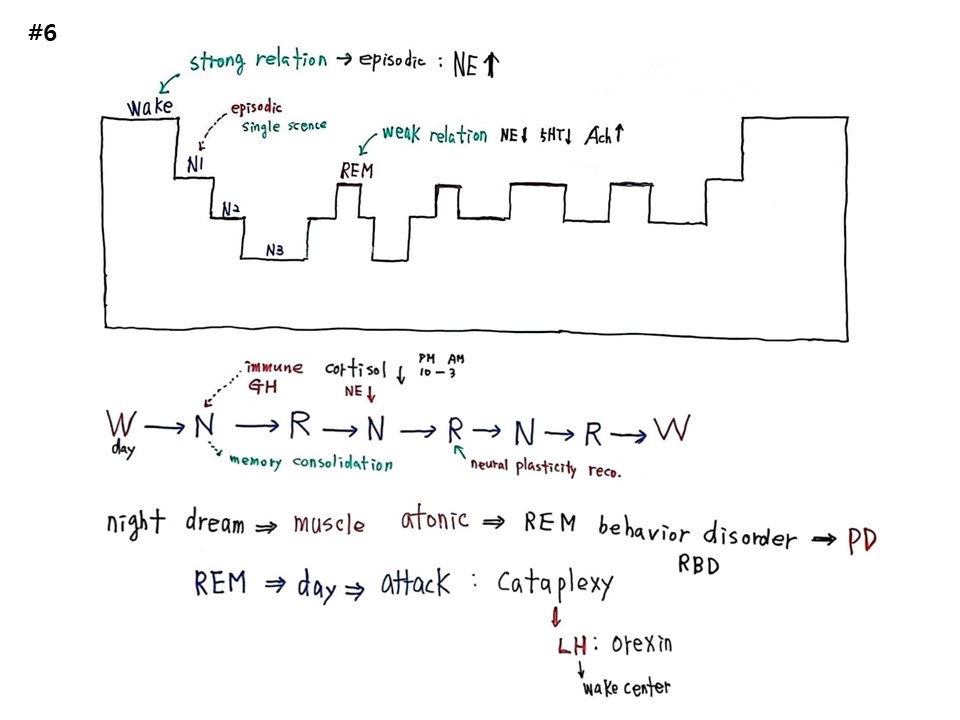 #6
strong relation → episodic : NE↑
wake
episodic
single scence
weak relation NE↓ 5HT↓ Ach↑
N1
REM
N2
N3
immune cortisol ↓ PM 10 – AM 3
GH NE↓
W → N → R → N → R → N → R → W
day
memory consolidation
neural plasticity reco.
night dream ⇒ muscle atonic ⇒ REM behavior disorder → PD
RBD
REM ⇒ day ⇒ attack : cataplexy
↓
LH : orexin
↓
wake center